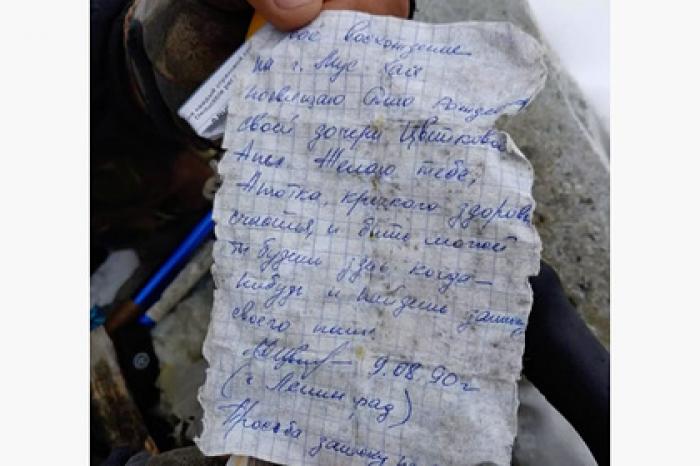 восхождение
на г. Мус Хая
посвящаю
своей дочери Цветковой
Желаю тебе,
крепкого здоровь
счастья, и быть может
ты будешь здесь когда-
нибудь и найдешь записку
своего папы
9.08.90г
(г. Ленинград)
Просьба записку не